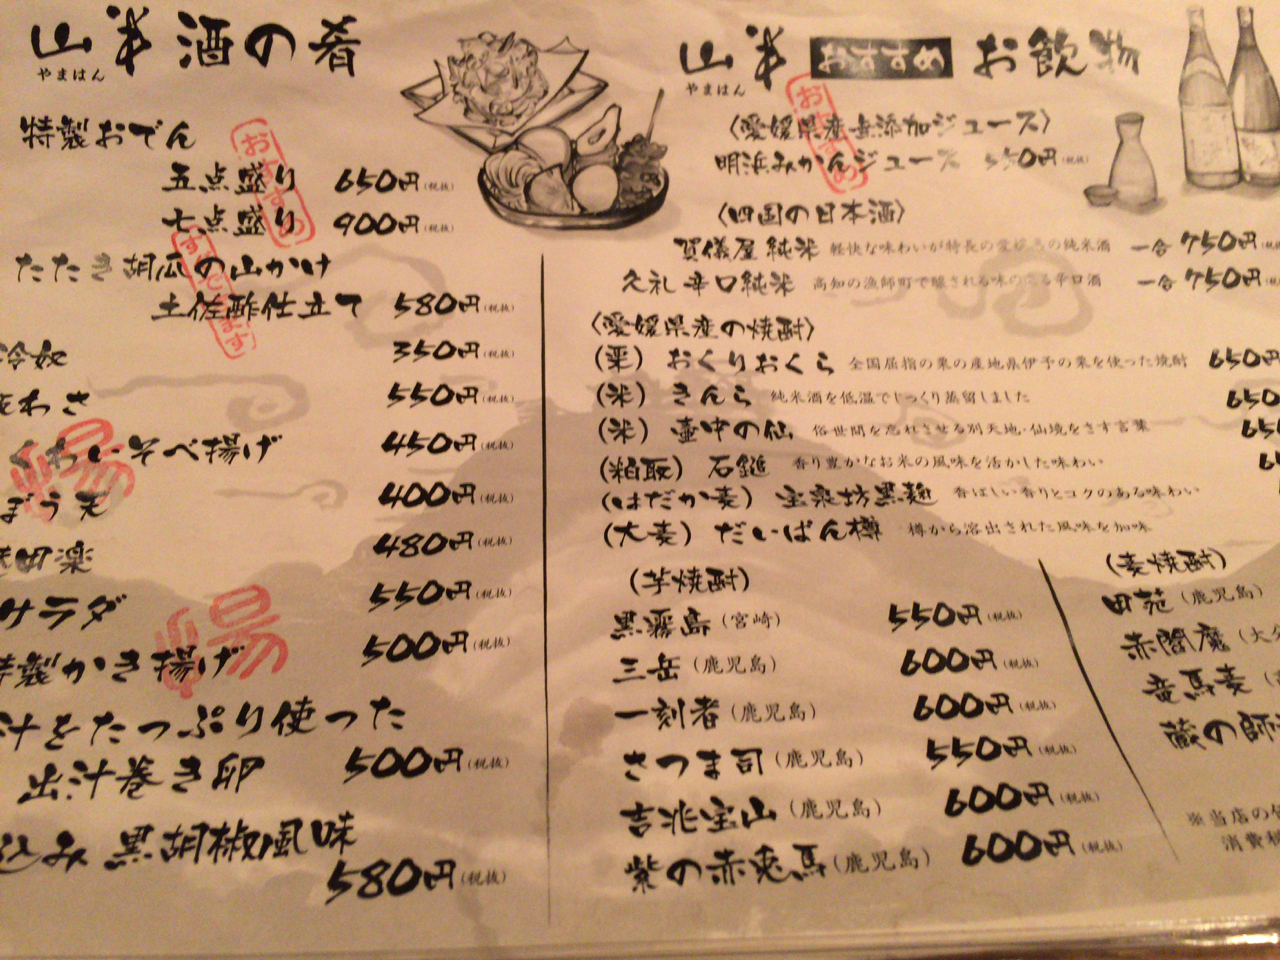 山半 酒の肴
やまはん
特製おでん
おすすめ
五点盛り 650円(税抜)
七点盛り 900円(税抜)
たたき胡瓜の山かけ
土佐酢仕立て 580円(税抜)
冷奴 350円(税抜)
わさ 550円(税抜)
いそべ揚げ 450円(税抜)
ぼう天 400円(税抜)
田楽 480円(税抜)
サラダ 550円(税抜)
特製かき揚げ 500円(税抜)
汁をたっぷり使った
出汁巻き卵 500円(税抜)
込み 黒胡椒風味
580円(税抜)
山半 おすすめ お飲物
やまはん
おすすめ
〈愛媛県産無添加ジュース〉
明浜みかんジュース 550円(税抜)
〈四国の日本酒〉
賀儀屋 純米 軽快な味わいが特長の愛媛の純米酒 一合 750円(税抜)
久礼 辛口純米 高知の漁師町で醸される味のある辛口酒 一合 750円
〈愛媛県産の焼酎〉
(栗) おくりおくら 全国屈指の栗の産地県伊予の栗を使った焼酎 650円
(米) きんら 純米酒を低温でじっくり蒸留しました 650
(米) 壷中の仙 俗世間を忘れさせる別天地・仙境をさす言葉 65
(粕取) 石鎚 香り豊かなお米の風味を活かした味わい 6
(はだか麦) 宝泉坊黒麹 香ばしい香りとコクのある味わい
(大麦) だいばん樽 樽から溶出された風味を加味
(芋焼酎)
黒霧島 (宮崎) 550円(税抜)
三岳 (鹿児島) 600円(税抜)
一刻者 (鹿児島) 600円(税抜)
さつま司 (鹿児島) 550円(税抜)
吉兆宝山 (鹿児島) 600円(税抜)
紫の赤兎馬 (鹿児島) 600円(税抜)
(麦焼酎)
田苑 (鹿児島)
赤閻魔 (大分
竜馬麦
蔵の師
※当店の
消費税